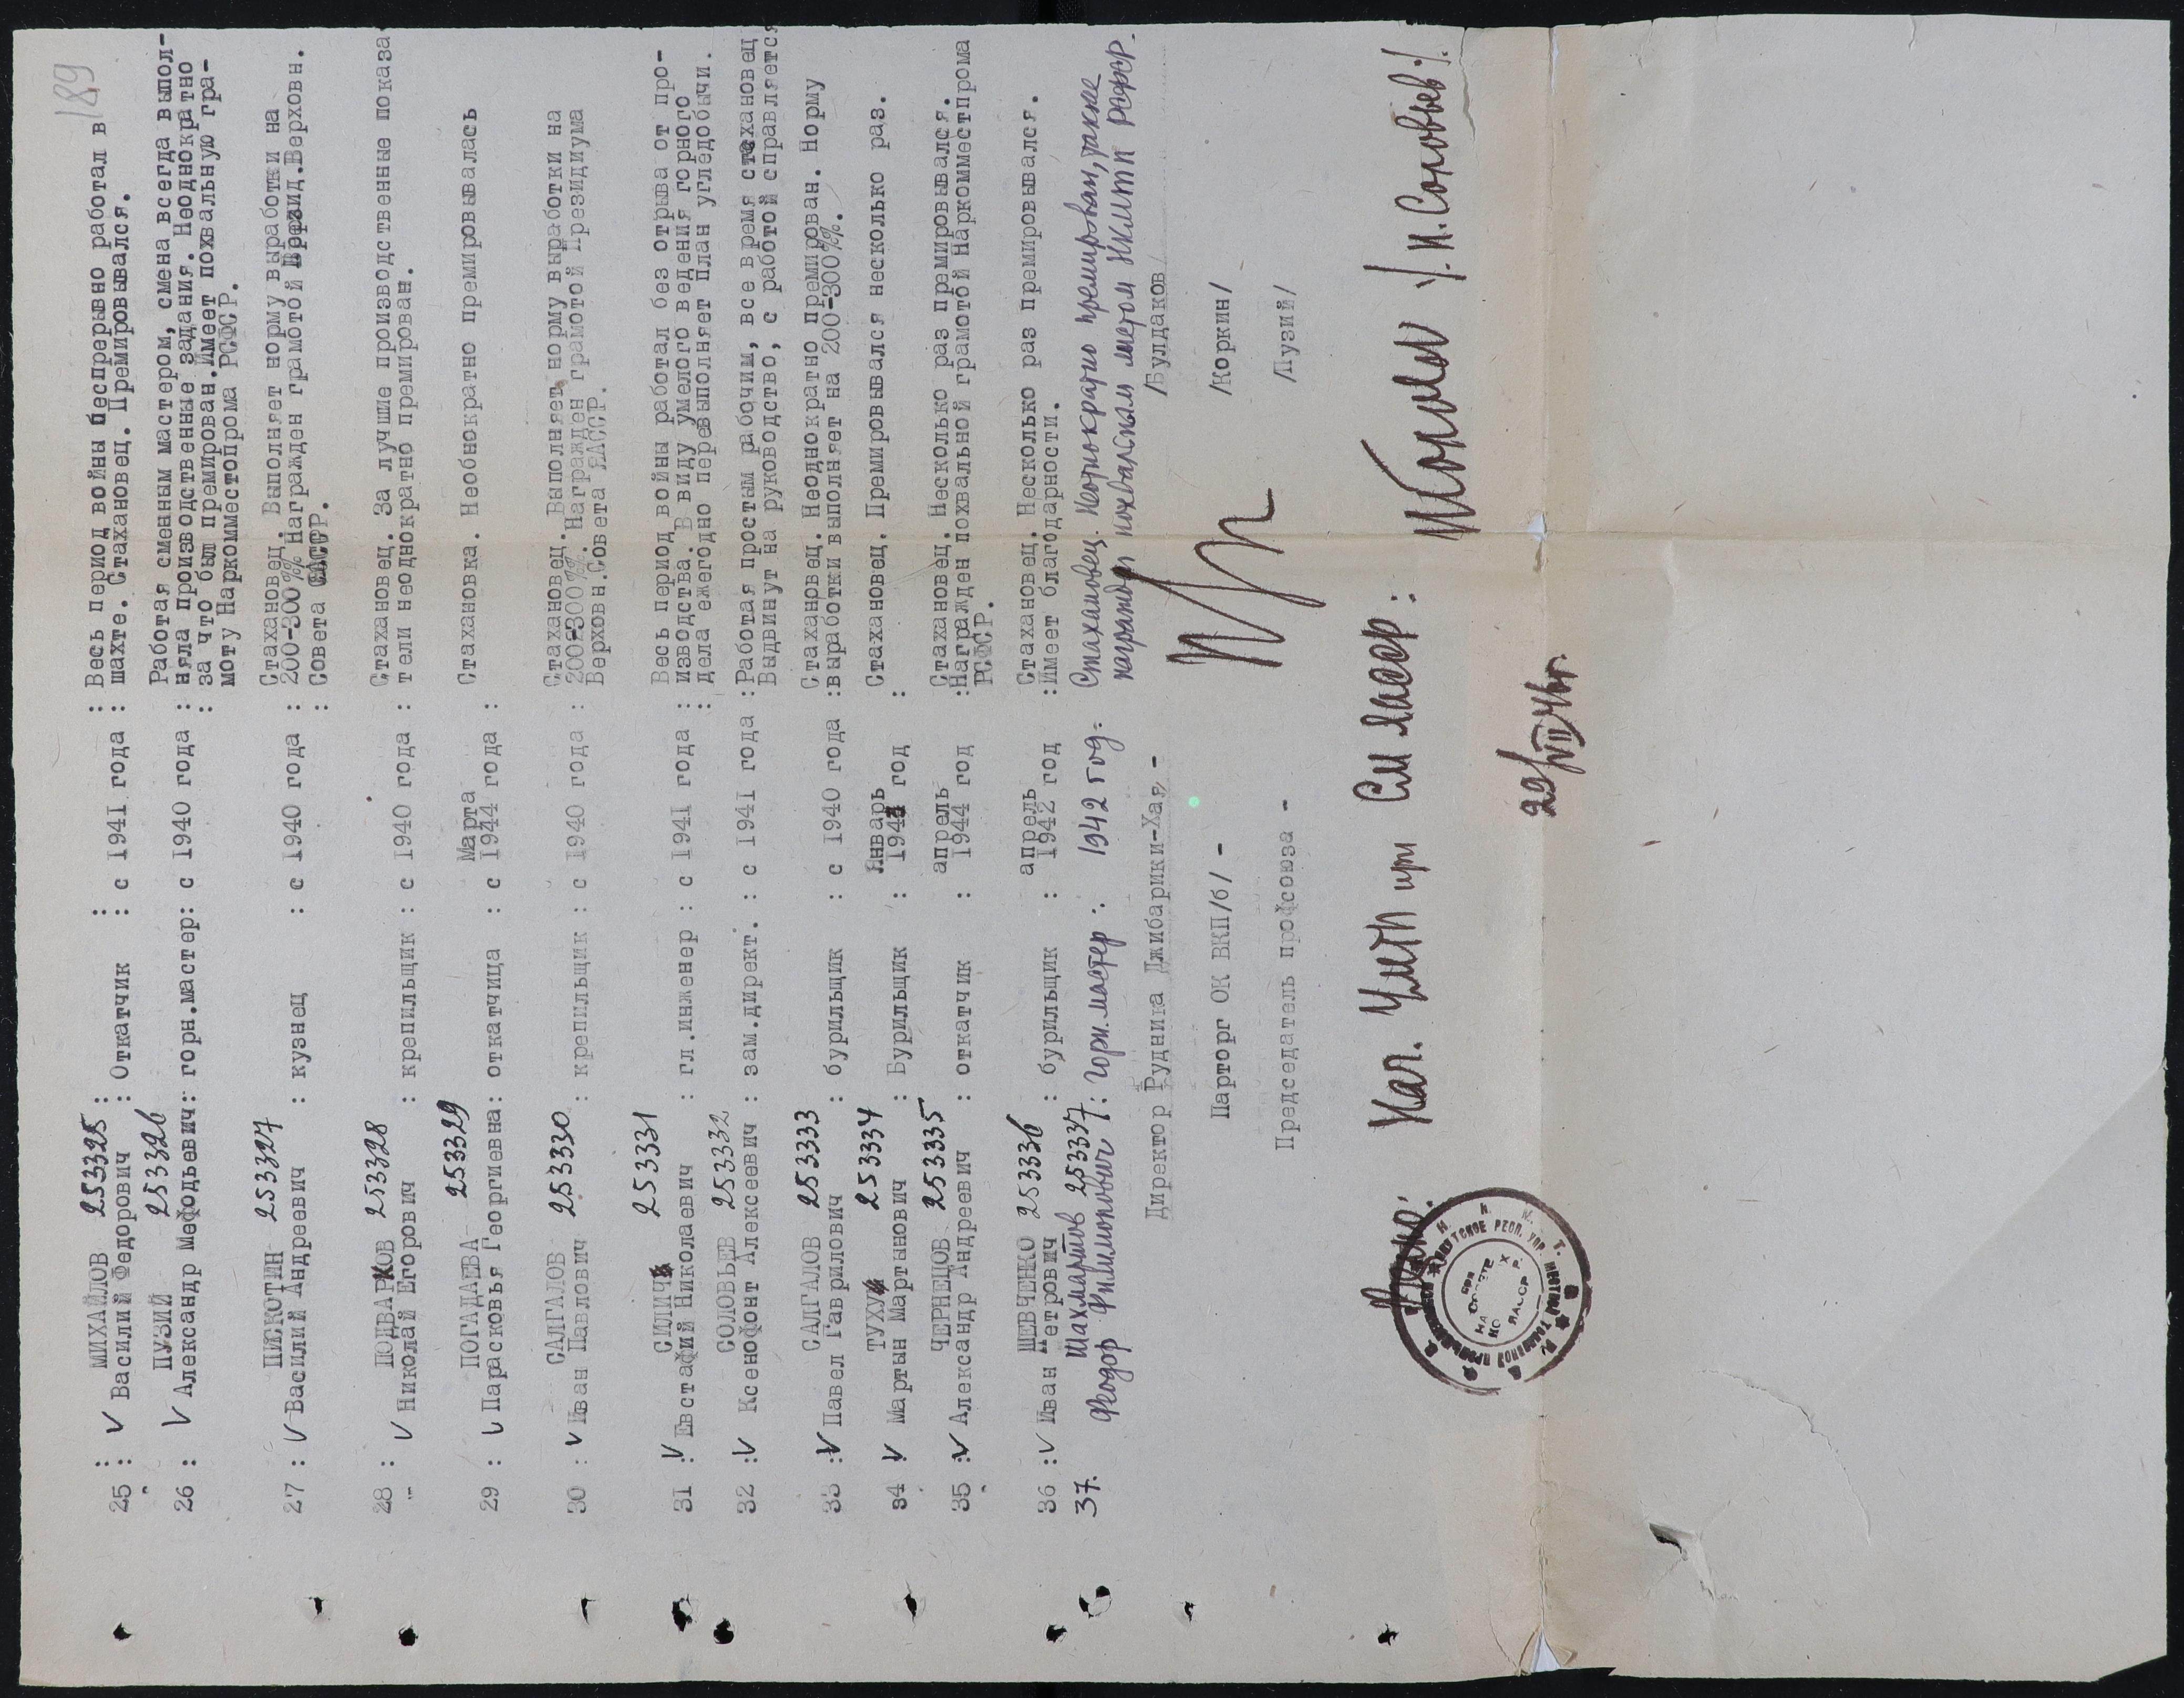 189
25 : МИХАЙЛОВ 253325 : : Весь период войны беспрерывно работал в
: V Василий Федорович : Откатчик : с 1941 года : шахте. Стахановец. Премировывался.
ПУЗИЙ 253326 Работая сменным мастером, смена всегда выпол-
26 : V Александр Мефодьевич: горн.мастер: с 1940 года : няла производственные задания. Неоднократно
: за что был премирован. Имеет похвальную гра-
моту Наркомместопрома РСФСР.
ПИСКОТИН 253327 Стахановец. Выполняет норму выработки на
27 : V Василий Андреевич : кузнец : с 1940 года : 200-300%% Награжден грамотой Презид.Верховн.
: Совета ЯАССР.
ПОДВАРКОВ 253328 Стахановец. За лучшие производственные показа
28 : V Николай Егорович : крепильщик : с 1940 года : тели неоднократно премирован.
ПОГАДАЕВА 253329 Марта
29 : V Парасковья Георгиевна: откатчица : с 1944 года : Стахановка. Необнократно премировывалась
САЛГАЛОВ Стахановец. Выполняет норму выработки на
30 : V Иван Павлович 253330 : крепильщик : с 1940 года : 200-300%%. Награжден грамотой Президиума
Верховн.Совета ЯАССР.
СИЛИЧ 253331 Весь период войны работал без отрыва от про-
31 : V Евстафий Николаевич : гл.инженер : с 1941 года : изводства. В виду умелого ведения горного
: дела ежегодно перевыполняет план угледобычи.
СОЛОВЬЕВ 253332
32 : V Ксенофонт Алексеевич : зам.директ. : с 1941 года : Работая простым рабочим, все время стахановец
Выдвинут на руководство, с работой справляется
САЛГАЛОВ 253333 Стахановец. Неоднократно премирован. Норму
33 : V Павел Гаврилович : бурильщик : с 1940 года : выработки выполняет на 200-300%%.
ТУХУ 253334 Январь Стахановец. Премировывался несколько раз.
34 V Мартын Мартынович : Бурильщик : год :
ЧЕРНЕЦОВ 253335 апрель Стахановец. Несколько раз премировывался.
35 : V Александр Андреевич : откатчик : 1944 год : Награжден похвальной грамотой Наркомместпрома
РСФСР.
ШЕВЧЕНКО 253336 апрель Стахановец. Несколько раз премировывался.
36 : V Иван Петрович : бурильщик : 1942 год : Имеет благодарности.
37. Шахмартов 253337 : горн.мастер : 1942 год. Стахановец. Неоднократно премирован, также
Феодор Филимонович награжден похвальным листом НКМТП РСФСР.
Директор Рудника Джибарики-Хая - /Булдаков/
Парторг ОК ВКП/б/ - /Коркин/
Председатель профсоюза - /Пузий/
Верно: Нач. при СМ ЯАССР: /. И. Соловьев /.
29/VII 46г.